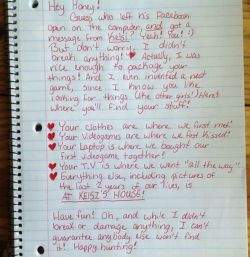 Hey Honey!
Guess who left his Facebook
open on the computer, and got a
message from Keisi? Yeah! You! :)
But don't worry, I didn't
break anything! ♥ Actually, I was
nice enough to package your
things! And I even invented a neat
game, since I know you like
looking for things like other girls! Here's
where you'll find your stuff!
♥ Your clothes are where we first met!
♥ Your videogames are where we first kissed!
♥ Your laptop is where we bought our
first videogame together!
♥ Your T.V. is where we went "all the way"
♥ Everything else, including pictures of
the last 2 years of our lives, is
AT KEISI'S HOUSE!
Have fun! Oh, and while I didn't
break or damage anything, I can't
guarantee anybody else won't find
it! Happy hunting!